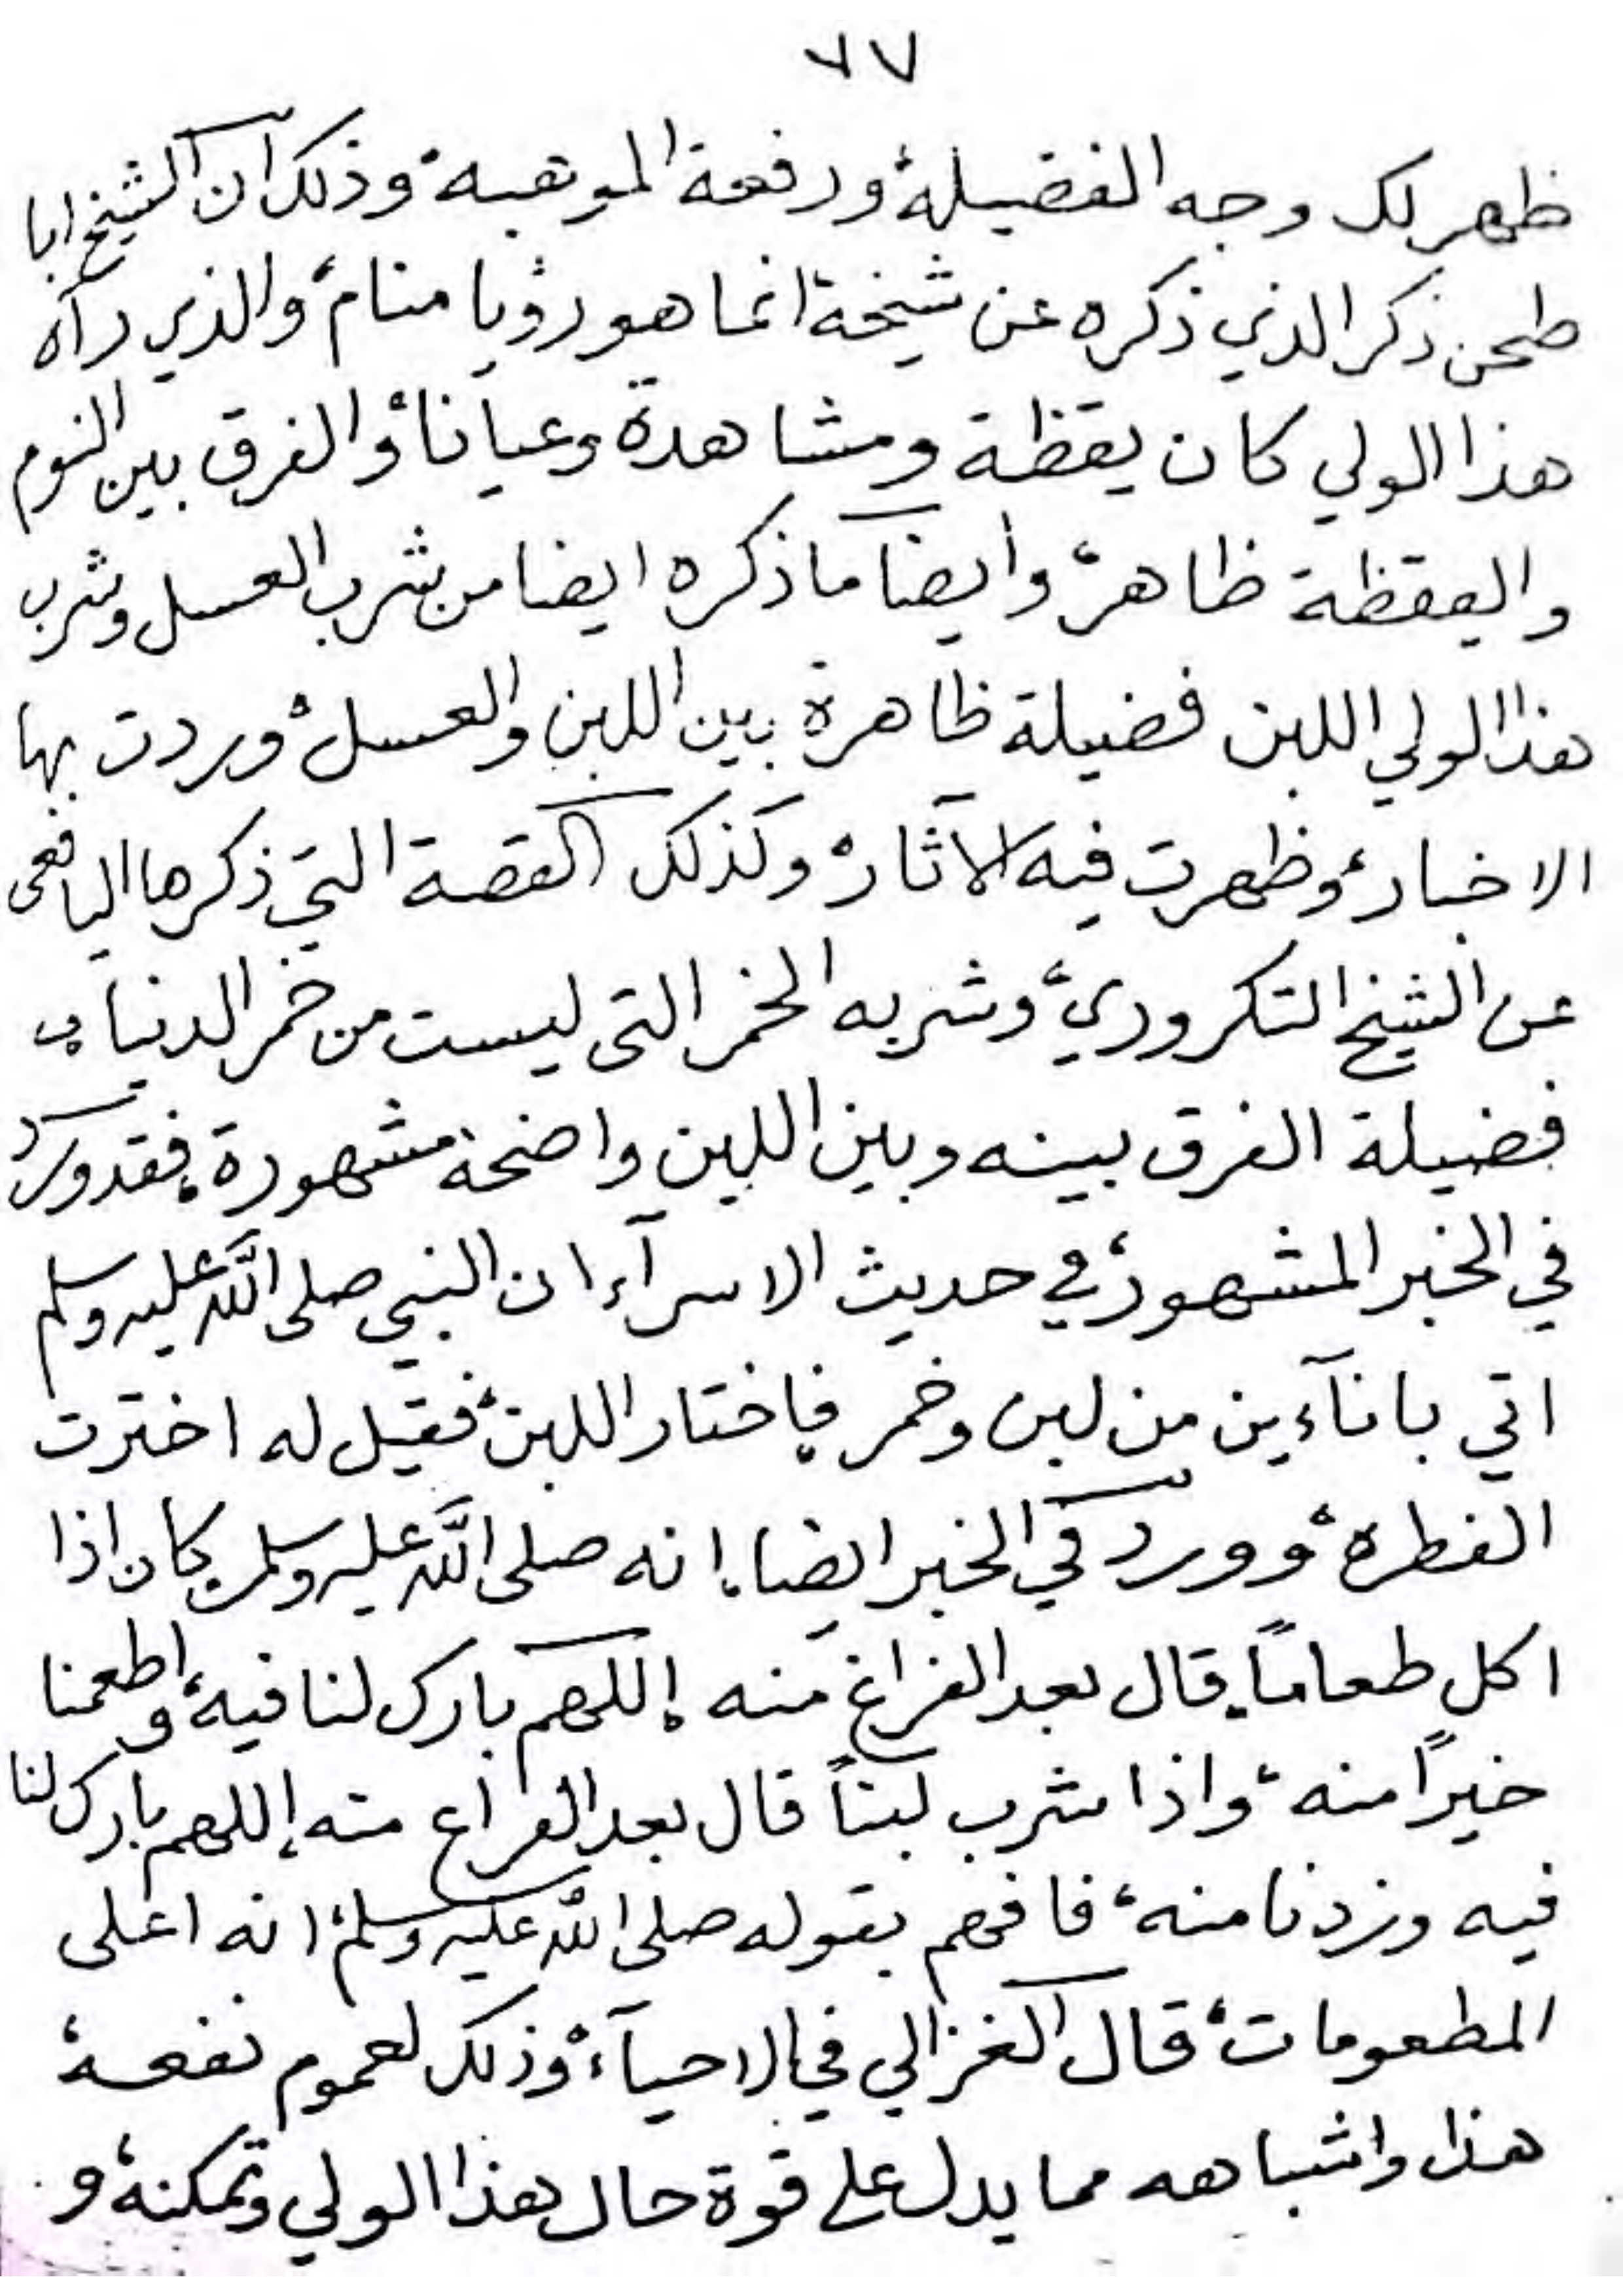 ٦٧
ظهر لك وجه الفضيلة، ورفعة الموهبة، وذلك ان الشيخ ابا
طحن ذكر الذي ذكره عن شيخة انما هو رؤيا منام، والذي رآه
هذا الولي كان يقظة ومشاهدة وعيانا، والفرق بين النوم
واليقظة ظاهر، وايضا ما ذكره ايضا من شرب العسل وشرب
هذا الولي اللبن فضيلة ظاهرة بين اللبن والعسل، وردت بها
الاخبار، وظهرت فيه الآثار، وكذلك القصة التي ذكرها اليافعى
عن الشيخ التكروري، وشربه الخمر التى ليست من خمر الدنيا،
فضيلة الفرق بينه وبين اللبن واضحة مشهورة، فقد ورد
في الخبر المشهور، في حديث الاسرآء ان النبي صلى الله عليه وسلم
اتي بانآءين من لبن وخمر، فاختار اللبن، فقيل له اخترت
الفطرة، وورد في الخبر ايضا، انه صلى الله عليه وسلم، كان اذا
اكل طعاماً، قال بعد الفراغ منه، اللهم بارك لنا فيه، واطعمنا
خيراً منه، واذا شرب لبناً قال بعد الفراغ منه، اللهم بارك لنا
فيه وزدنا منه، فافهم بقوله صلى الله عليه وسلم، انه اعلى
المطعومات، قال الغزالي في الاحيآء، وذلك لعموم نفعه،
هذا واشباهه مما يدل على قوة حال هذا الولي وتمكنه، و